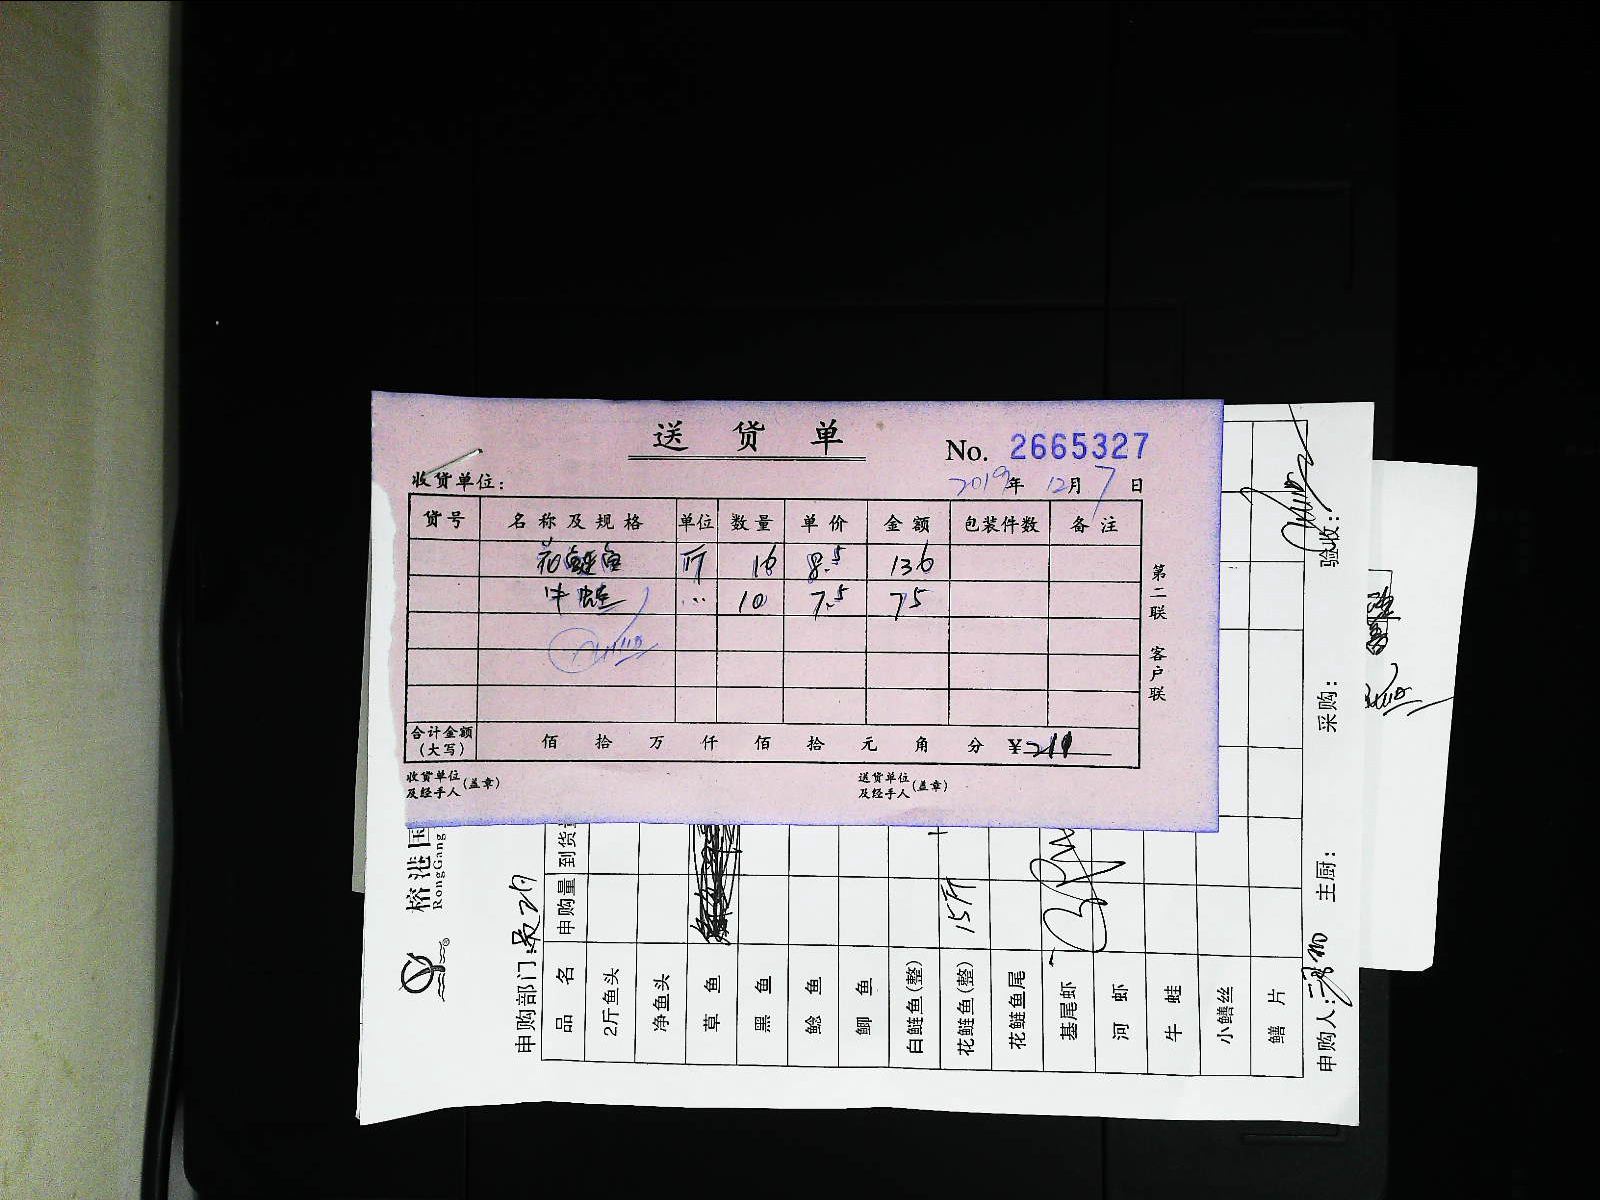 送 货 单
No. 2665327
收货单位：
2019年 12月 7日
货号 名称及规格 单位 数量 单价 金额 包装件数 备注
花鲢鱼 斤 16 8.5 136
牛蛙 … 10 7.5 75
合计金额（大写） 佰 拾 万 仟 佰 拾 元 角 分 ¥211
收货单位及经手人（盖章） 送货单位及经手人（盖章）
第二联 客户联
榕港国
RongGang
申购部门：
品名 申购量 到货量
2斤鱼头
净鱼头
草鱼
黑鱼
鲶鱼
鲫鱼
白鲢鱼(整)
花鲢鱼(整) 15斤
花鲢鱼尾
基尾虾
河虾
牛蛙
小鳝丝
鳝片
申购人： 主厨： 采购： 验收：